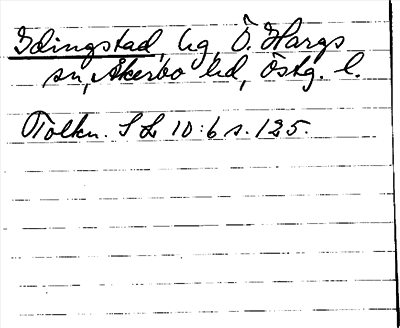 Idingstad, hg, Ö. Hargs
sn, Åkerbo hd, Östg. l.
Tolkn. SL 10:6 s. 125.